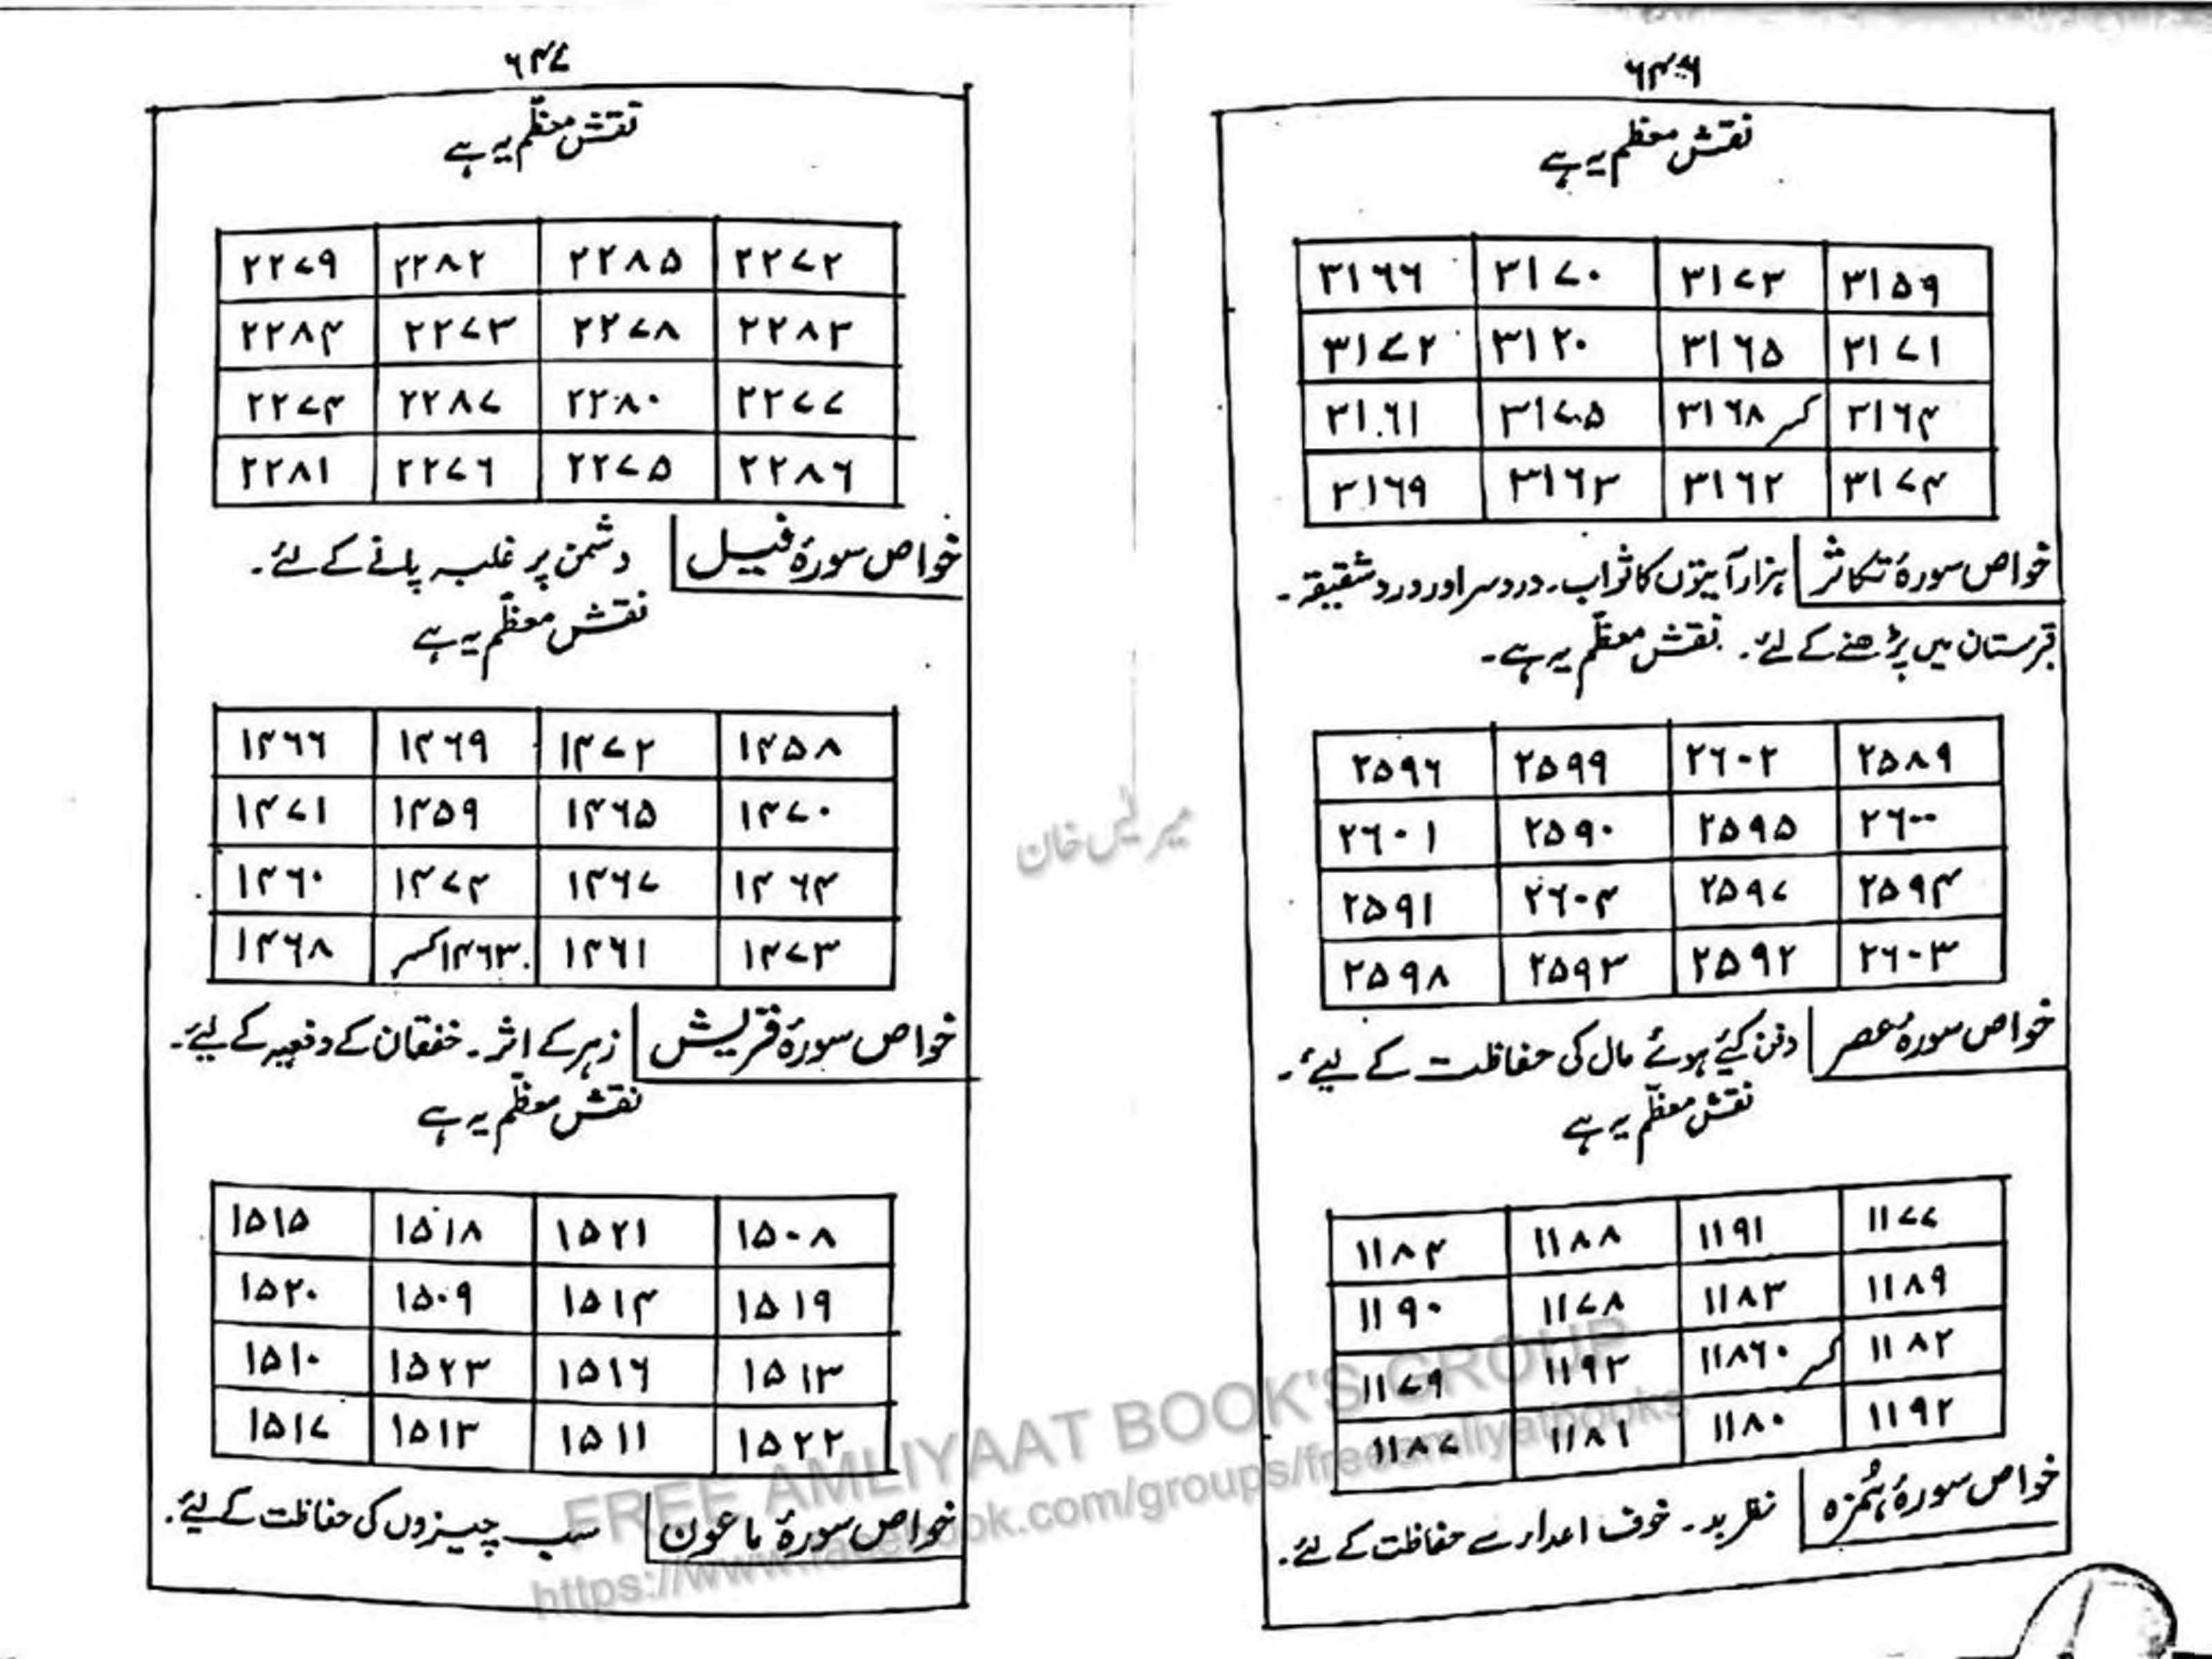 ۶۴۶
نقش معظّم یہ ہے
۳۱۶۶ ۳۱۷۰ ۳۱۷۳ ۳۱۵۹
۳۱۷۲ ۳۱۲۰ ۳۱۶۵ ۳۱۷۱
۳۱۶۱ ۳۱۷۵ ۳۱۶۸ کسر ۳۱۶۴
۳۱۶۹ ۳۱۶۳ ۳۱۶۲ ۳۱۷۴
خواص سورۂ تکاثر ہزار آیتوں کا ثواب۔ درد سر اور درد شقیقہ۔
قبرستان میں پڑھنے کے لئے۔ نقش معظّم یہ ہے۔
۲۵۹۶ ۲۵۹۹ ۲۶۰۲ ۲۵۸۹
۲۶۰۱ ۲۵۹۰ ۲۵۹۵ ۲۶۰۰
۲۵۹۱ ۲۶۰۴ ۲۵۹۷ ۲۵۹۴
۲۵۹۸ ۲۵۹۳ ۲۵۹۲ ۲۶۰۳
خواص سورۂ عصر دفن کیٔے ہوئے مال کی حفاظت کے لیٔے۔
نقش معظّم یہ ہے
۱۱۸۴ ۱۱۸۸ ۱۱۹۱ ۱۱۷۷
۱۱۹۰ ۱۱۷۸ ۱۱۸۳ ۱۱۸۹
۱۱۷۹ ۱۱۹۳ ۱۱۸۶۰ کسر ۱۱۸۲
۱۱۸۷ ۱۱۸۱ ۱۱۸۰ ۱۱۹۲
خواص سورۂ ہُمزہ نظر بد۔ خوف اعداء سے حفاظت کے لئے۔
۶۴۷
نقش معظّم یہ ہے
۲۲۷۹ ۲۲۸۲ ۲۲۸۵ ۲۲۷۲
۲۲۸۴ ۲۲۷۳ ۲۲۷۸ ۲۲۸۳
۲۲۷۴ ۲۲۸۷ ۲۲۸۰ ۲۲۷۷
۲۲۸۱ ۲۲۷۶ ۲۲۷۵ ۲۲۸۶
خواص سورۂ فیل دشمن پر غلبہ پانے کے لئے۔
نقش معظّم یہ ہے
۱۴۶۶ ۱۴۶۹ ۱۴۷۲ ۱۴۵۸
۱۴۷۱ ۱۴۵۹ ۱۴۶۵ ۱۴۷۰
۱۴۶۰ ۱۴۷۴ ۱۴۶۷ ۱۴۶۴
۱۴۶۸ ۱۴۶۳ کسر ۱۴۶۱ ۱۴۷۳
خواص سورۂ قریش زہر کے اثر۔ خفقان کے دفعیہ کے لیٔے۔
نقش معظّم یہ ہے
۱۵۱۵ ۱۵۱۸ ۱۵۲۱ ۱۵۰۸
۱۵۲۰ ۱۵۰۹ ۱۵۱۴ ۱۵۱۹
۱۵۱۰ ۱۵۲۳ ۱۵۱۶ ۱۵۱۳
۱۵۱۷ ۱۵۱۳ ۱۵۱۱ ۱۵۲۲
خواص سورۂ ماعون سب چیزوں کی حفاظت کے لیٔے۔
خان
FREE AMLIYAAT BOOK'S GROUP
https://www.facebook.com/groups/freeamliyatbooks